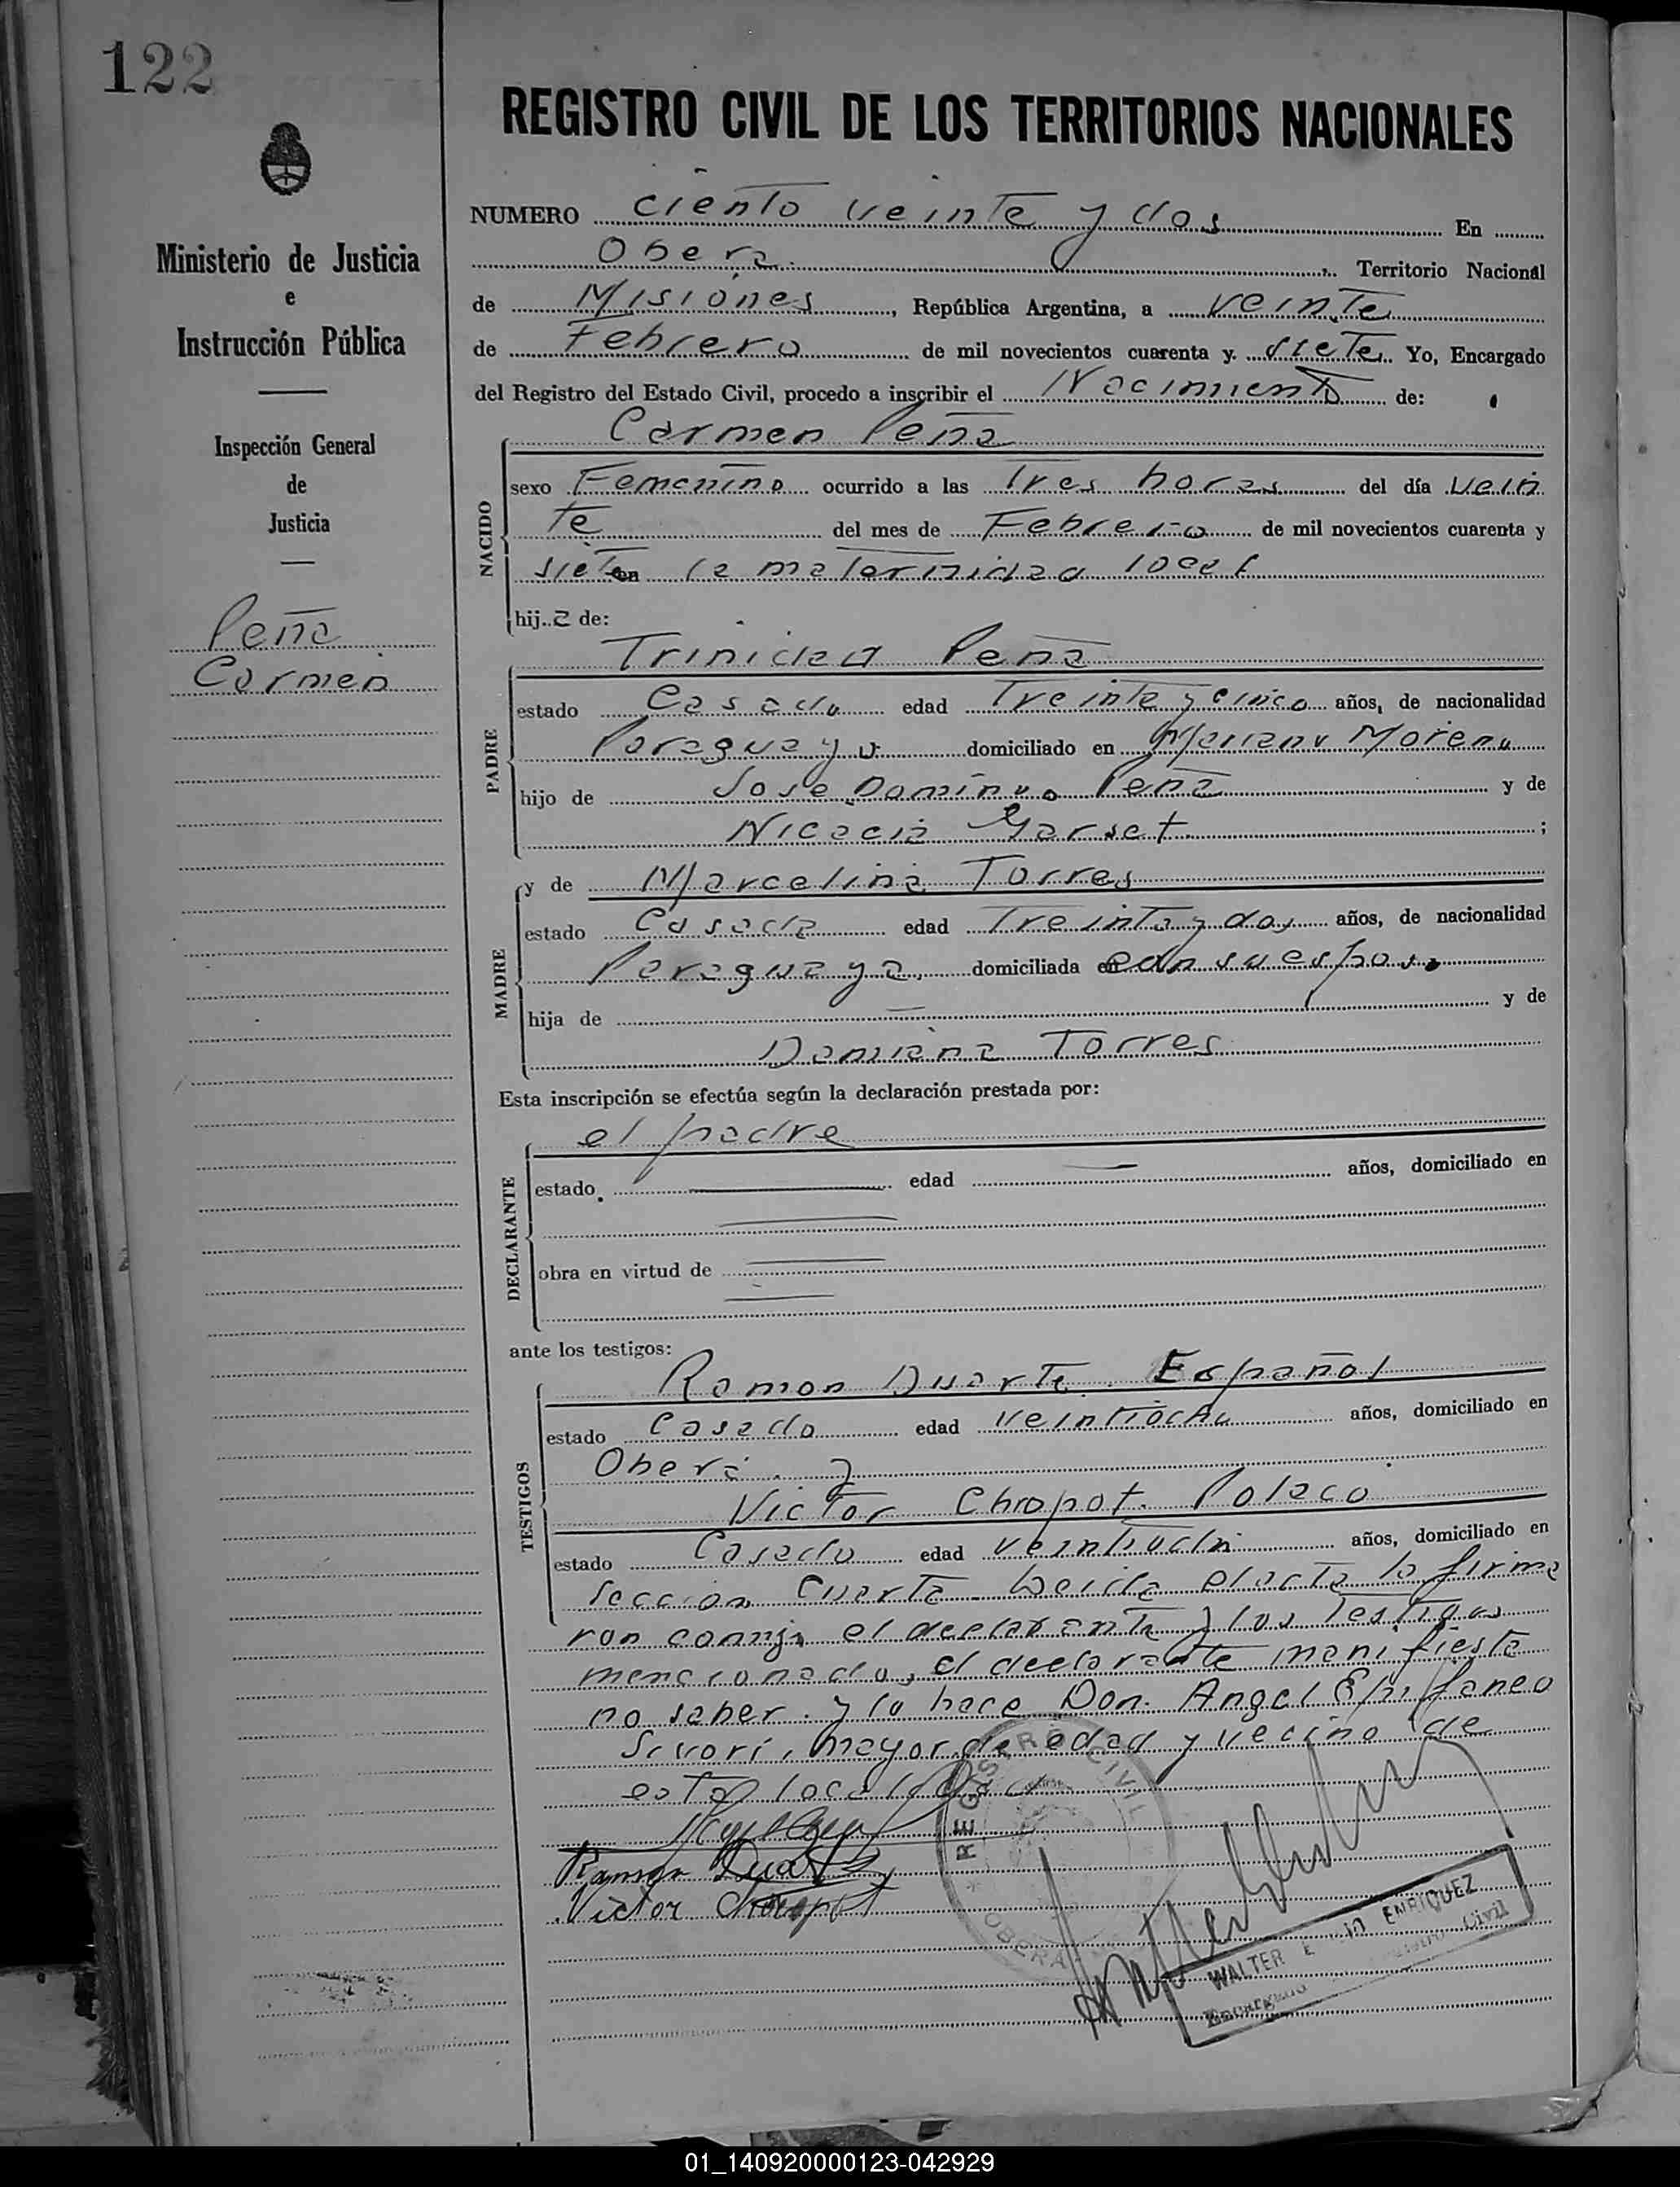 122
REGISTRO CIVIL DE LOS TERRITORIOS NACIONALES
Ministerio de Justicia
e
Instrucción Pública
Inspección General
de
Justicia
Peña
Carmen
NUMERO ciento veinte y dos En
Obera Territorio Nacional
de Misiones, República Argentina, a veinte
de Febrero de mil novecientos cuarenta y siete Yo, Encargado
del Registro del Estado Civil, procedo a inscribir el Nacimiento de:
Carmen Peña
NACIDO
sexo Femenino ocurrido a las Tres horas del día vein
te del mes de Febrero de mil novecientos cuarenta y
siete en la maternidad local
hija de:
Trinidad Peña
PADRE
estado Casado edad Treinta y cinco años, de nacionalidad
Paraguayo domiciliado en Mariano Moreno
hijo de Jose Peña y de
Nicacia ;
MADRE
y de Marcelina Torres
estado Casada edad Treinta y dos años, de nacionalidad
Paraguaya domiciliada en con su esposo
hija de y de
Damiana Torres
Esta inscripción se efectúa según la declaración prestada por:
el padre
DECLARANTE
estado edad años, domiciliado en
obra en virtud de
ante los testigos:
TESTIGOS
Ramon Duarte. Español
estado Casado edad veintiocho años, domiciliado en
Oberá. y
Victor Chropot. Polaco
estado Casado edad años, domiciliado en
Seccion Cuarta Leida el acta la firma
ron conmigo el declarante y los Testigos
mencionados, el declarante manifiesta
no saber. y lo hace Don. Angel Epifaneo
Sivori, mayor de edad y vecino de
esta localidad
Ramon Duarte
Victor Chropot
REGISTRO CIVIL
OBERA
WALTER ENRIQUEZ
Encargado Registro Civil
01_140920000123-042929